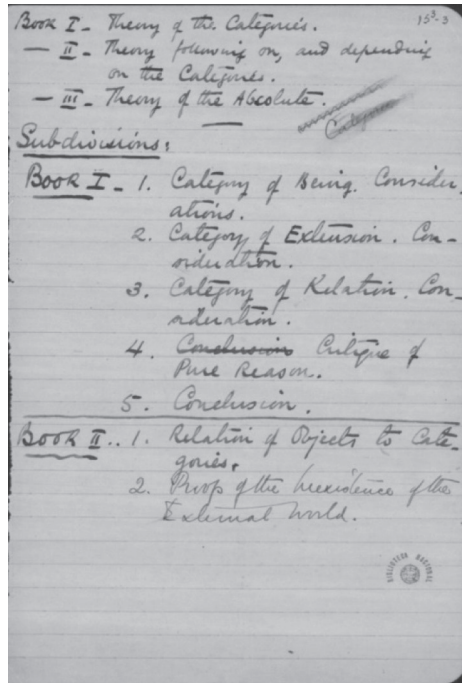 15³-3
Book I - Theory of the Categories.
— II - Theory following on, and depending
on the Categories.
— III - Theory of the Absolute.
Categories
Subdivisions:
Book I - 1. Category of Being. Consider-
ations.
2. Category of Extension. Con-
sideration.
3. Category of Relation. Con-
sideration.
4. Conclusion Critique of
Pure Reason.
5. Conclusion.
Book II.. 1. Relation of Objects to Cate-
gories.
2. Proof of the Inexistence of the
External World.
BIBLIOTECA NACIONAL